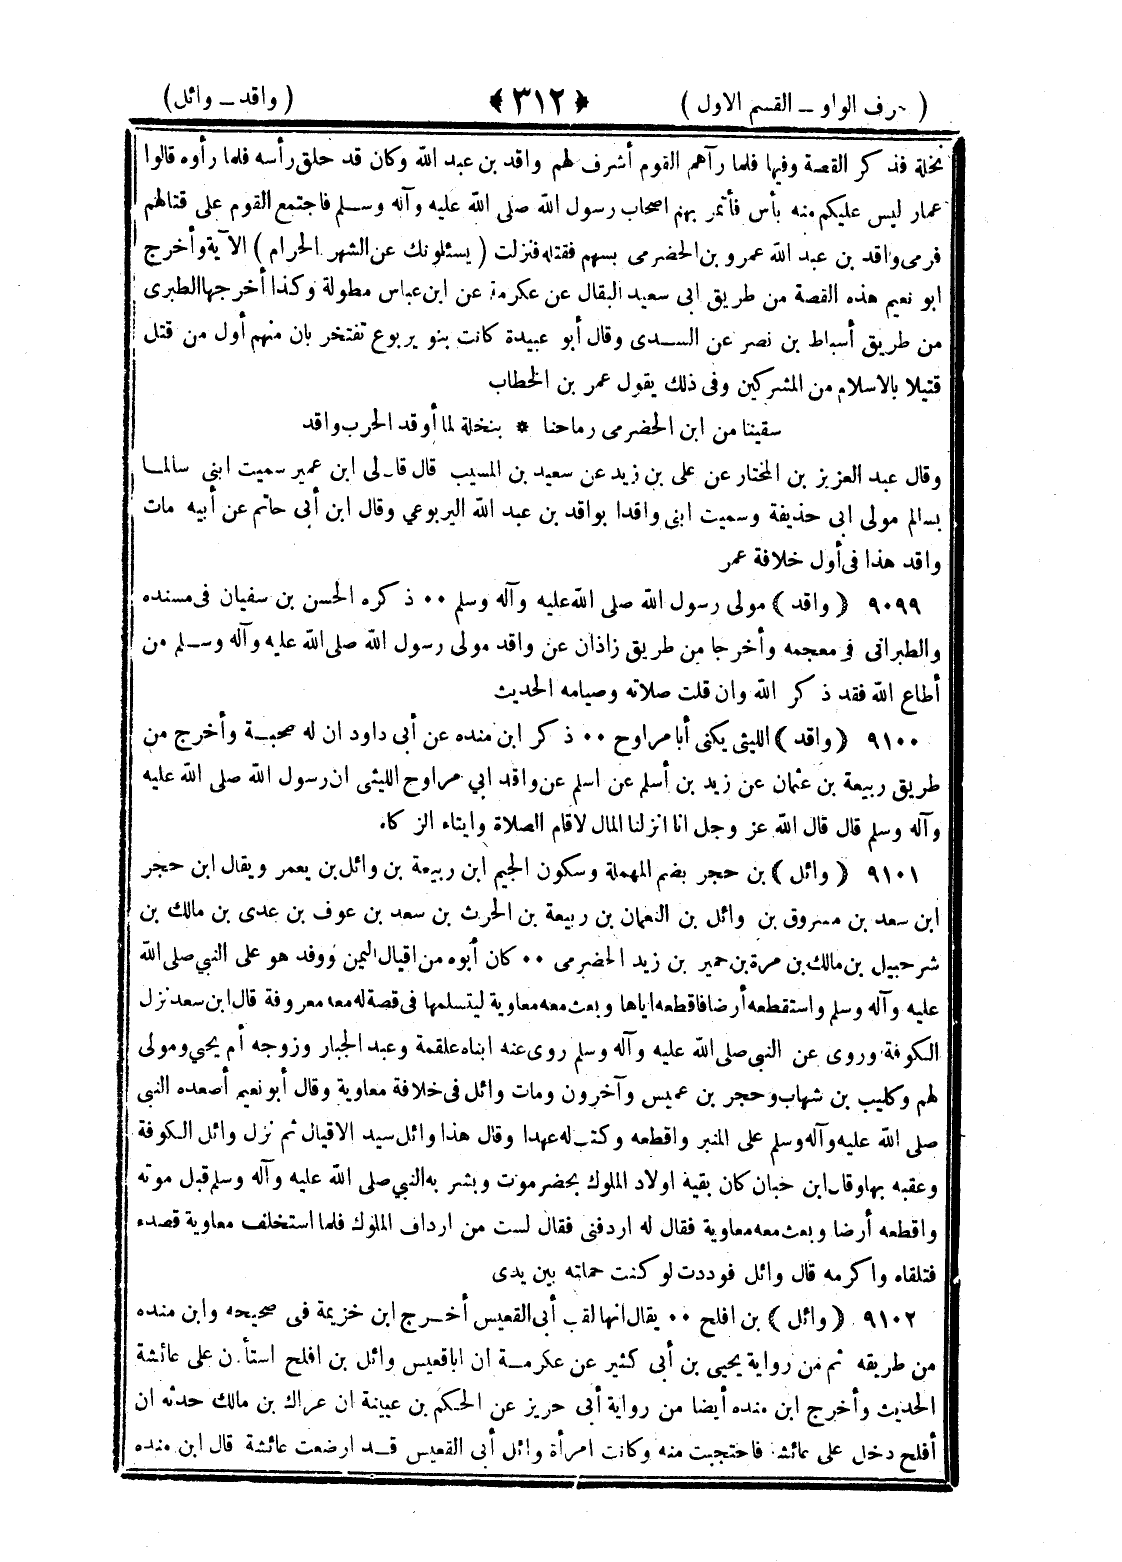 ( حرف الواو ــ القسم الاول )
﴿ ٣١٢ ﴾
( واقد ــ وائل )
نخلة فذ كر القصة وفيها فلما رآهم القوم أشرف لهم واقد بن عبد الله وكان قد حلق رأسه فلما رأوه قالوا
عمار ليس عليكم منه بأس فأتمر بهم اصحاب رسول الله صلى الله عليه وآله وسلم فاجتمع القوم على قتالهم
فرمى واقد بن عبد الله عمرو بن الحضرمى بسهم فقتله فنزلت ( يسئلونك عن الشهر الحرام ) الآية وأخرج
ابو نعيم هذه القصة من طريق ابى سعيد البقال عن عكرمة عن ابن عباس مطولة وكذا أخرجها الطبرى
من طريق أسباط بن نصر عن السدى وقال أبو عبيدة كانت بنو يربوع تفتخر بان منهم أول من قتل
قتيلا بالاسلام من المشركين وفى ذلك يقول عمر بن الخطاب
سقينا من ابن الحضرمى رماحنا * بنخلة لما أوقد الحرب واقد
وقال عبد العزيز بن المختار عن على بن زيد عن سعيد بن المسيب قال قا لى ابن عمير سميت ابنى سالما
بسالم مولى ابى حذيفة وسميت ابنى واقدا بواقد بن عبد الله اليربوعي وقال ابن أبى حاتم عن أبيه مات
واقد هذا فى أول خلافة عمر
٩٠٩٩ ( واقد ) مولى رسول الله صلى الله عليه وآله وسلم ٠٠ ذ كره الحسن بن سفيان فى مسنده
والطبرانى فى معجمه وأخرجا من طريق زاذان عن واقد مولى رسول الله صلى الله عليه وآله وسلم من
أطاع الله فقد ذ كر الله وان قلت صلاته وصيامه الحديث
٩١٠٠ ( واقد ) الليثى يكنى أبا مراوح ٠٠ ذ كر ابن منده عن أبى داود ان له صحبة وأخرج من
طريق ربيعة بن عثمان عن زيد بن أسلم عن اسلم عن واقد ابي مراوح الليثى ان رسول الله صلى الله عليه
وآله وسلم قال قال الله عز وجل انا انزلنا المال لاقام الصلاة وايتاء الز كاة
٩١٠١ ( وائل ) بن حجر بضم المهملة وسكون الجيم ابن ربيعة بن وائل بن يعمر ويقال ابن حجر
ابن سعد بن مسروق بن وائل بن النعمان بن ربيعة بن الحرث بن سعد بن عوف بن عدى بن مالك بن
شرحبيل بن مالك بن مرة بن حمير بن زيد الحضرمى ٠٠ كان أبوه من اقيال اليمن ووفد هو على النبي صلى الله
عليه وآله وسلم واستقطعه أرضا فاقطعه اياها وبعث معه معاوية ليتسلمها فى قصة له معه معروفة قال ابن سعد نزل
الكوفة وروى عن النبى صلى الله عليه وآله وسلم روى عنه ابناه علقمة وعبد الجبار وزوجه أم يحيى ومولى
لهم وكليب بن شهاب وحجر بن عميس وآخرون ومات وائل فى خلافة معاوية وقال أبو نعيم أصعده النبى
صلى الله عليه وآله وسلم على المنبر واقطعه وكتب له عهدا وقال هذا وائل سيد الاقيال ثم نزل وائل الكوفة
وعقبه بها وقال ابن حبان كان بقية اولاد الملوك بحضرموت وبشر به النبي صلى الله عليه وآله وسلم قبل موته
واقطعه أرضا وبعث معه معاوية فقال له اردفنى فقال لست من ارداف الملوك فلما استخلف معاوية قصده
فتلقاه واكرمه قال وائل فوددت لو كنت حملته بين يدى
٩١٠٢ ( وائل ) بن افلح ٠٠ يقال انها لقب أبى القعيس أخرج ابن خزيمة فى صحيحه وابن منده
من طريقه ثم من رواية يحيى بن أبى كثير عن عكرمة ان ابا قعيس وائل بن افلح استأذن على عائشة
الحديث وأخرج ابن منده أيضا من رواية أبى حريز عن الحكم بن عيينة ان عراك بن مالك حدثه ان
أفلح دخل على عائشة فاحتجبت منه وكانت امرأة وائل أبى القعيس قد ارضعت عائشة قال ابن منده